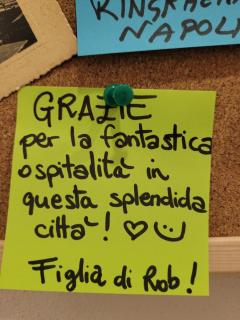 RINGRAZIA
NAPOLI
GRAZIE
per la fantastica
ospitalità in
questa splendida
città! ♡☺
Figlia di Rob!